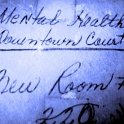 Mental Health
Downtown Court
New Room #
220